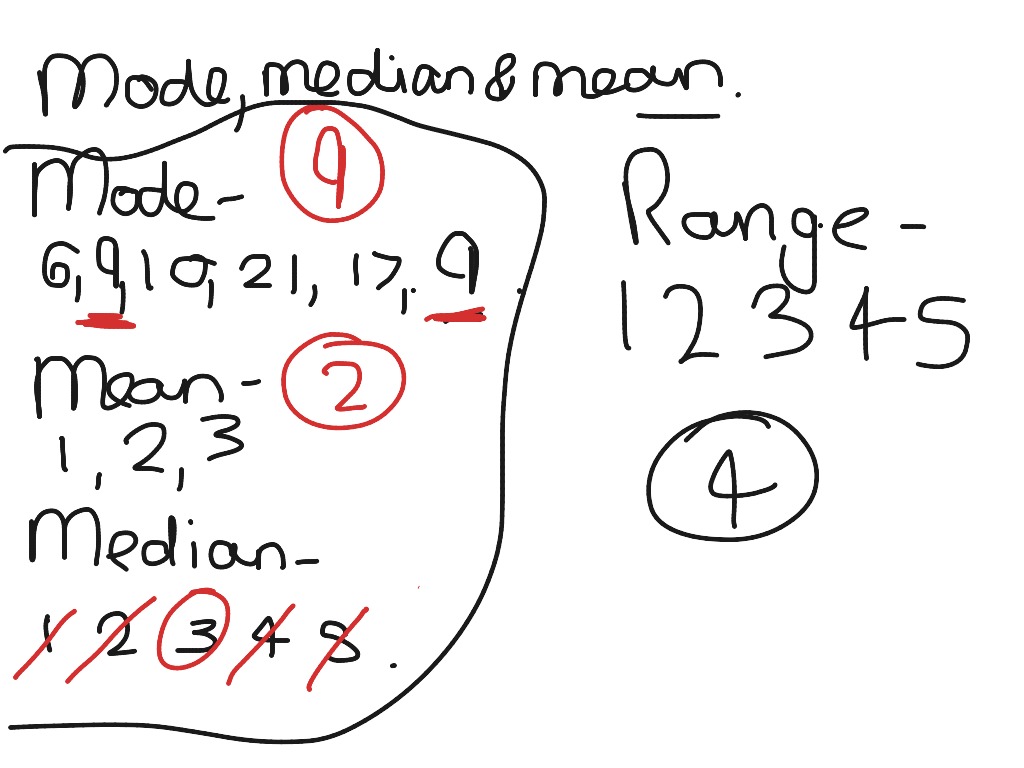 Mode, median & mean.
Mode- 9
6, 9, 10, 21, 17, 9.
Mean- 2
1, 2, 3
Median-
1 2 3 4 5.
Range-
1 2 3 4 5
4